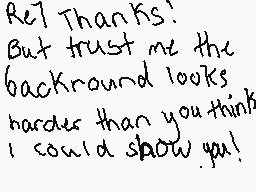 Re7 Thanks!
But trust me the
backround looks
harder than you think
i could show you!